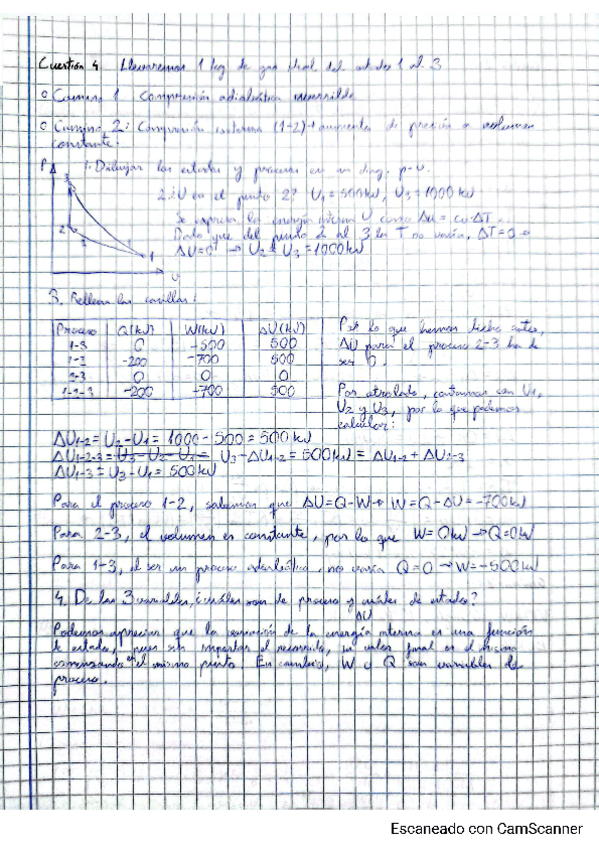 Cuestión 4. Llevaremos 1 kg de gas ideal del estado 1 al 3
o Camino 1 Compresión adiabática reversible
o Camino 2: Compresión isoterma (1-2) + aumento de presión a volumen
constante.
1. Dibujar los estados y procesos en un diag. p-v.
P
3
2
1
v
2. ¿U en el punto 2? U1 = 500kJ, U3 = 1000 kJ
Se expresa la energía interna U como Δu = cv·ΔT
Dado que del punto 2 al 3 la T no varía, ΔT=0 →
ΔU=0 → U2 = U3 = 1000kJ
3. Rellena las casillas:
Proceso Q(kJ) W(kJ) ΔU(kJ)
1-3 0 -500 500
1-2 -200 -700 500
2-3 0 0 0
1-2-3 -200 -700 500
Por lo que hemos dicho antes,
ΔU para el proceso 2-3 ha de
ser 0.
Por otro lado, contamos con U1,
U2 y U3, por lo que podemos
calcular:
ΔU1-2 = U2 - U1 = 1000 - 500 = 500 kJ
ΔU1-2-3 = U3 - U2 - U1 = U3 - ΔU1-2 = 500kJ = ΔU1-2 + ΔU2-3
ΔU1-3 = U3 - U1 = 500 kJ
Para el proceso 1-2, sabemos que ΔU=Q-W → W=Q-ΔU=-700kJ
Para 2-3, el volumen es constante, por lo que W=0kJ → Q=0kJ
Para 1-3, al ser un proceso adiabático, no varía Q=0 → W=-500kJ
4. De las 3 variables, ¿cuáles son de proceso y cuáles de estado?
ΔU
Podemos apreciar que la variación de la energía interna es una función
de estado, pues sin importar el recorrido, su valor final es el mismo
comenzando en el mismo punto. En cambio, W y Q son variables de
proceso.
Escaneado con CamScanner